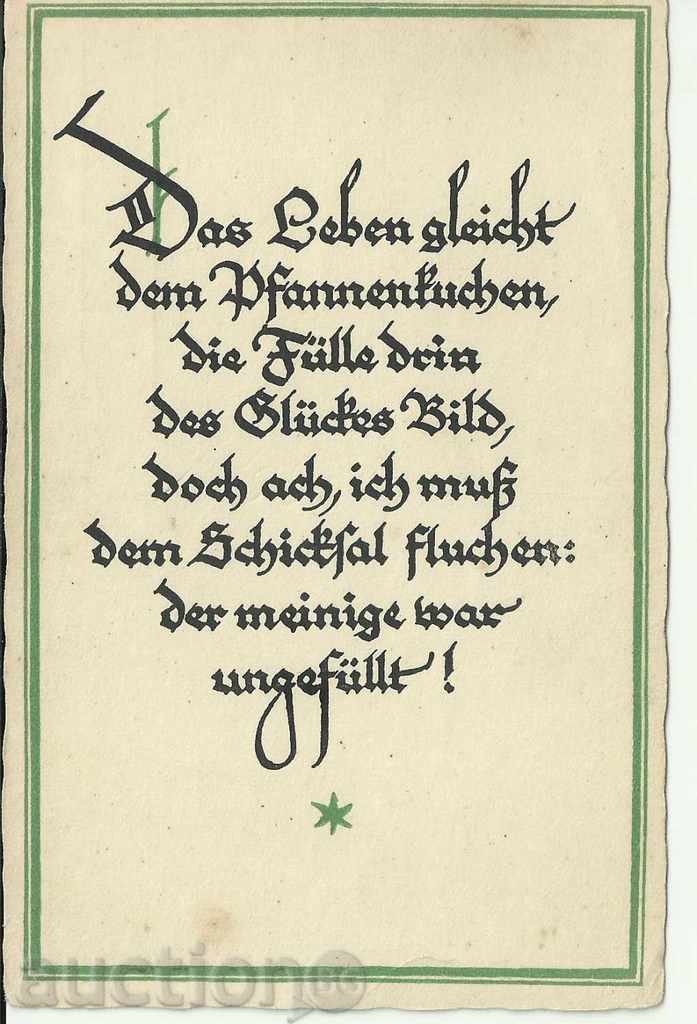 Das Leben gleicht
dem Pfannenkuchen,
die Fülle drin
des Glückes Bild,
doch ach, ich muß
dem Schickſal fluchen:
der meinige war
ungefüllt!
auction.bg